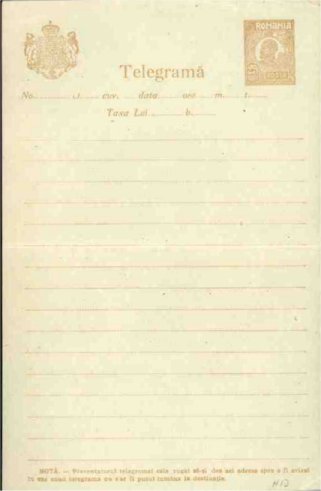 ROMANIA
Telegramă
No. ct. cuv. data ore m. t.
Taxa Lei b.
NOTĂ. — Prezentatorul telegramei este rugat să-și dea aci adresa spre a fi avizat
în caz când telegrama nu s'ar fi putut remite la destinație.